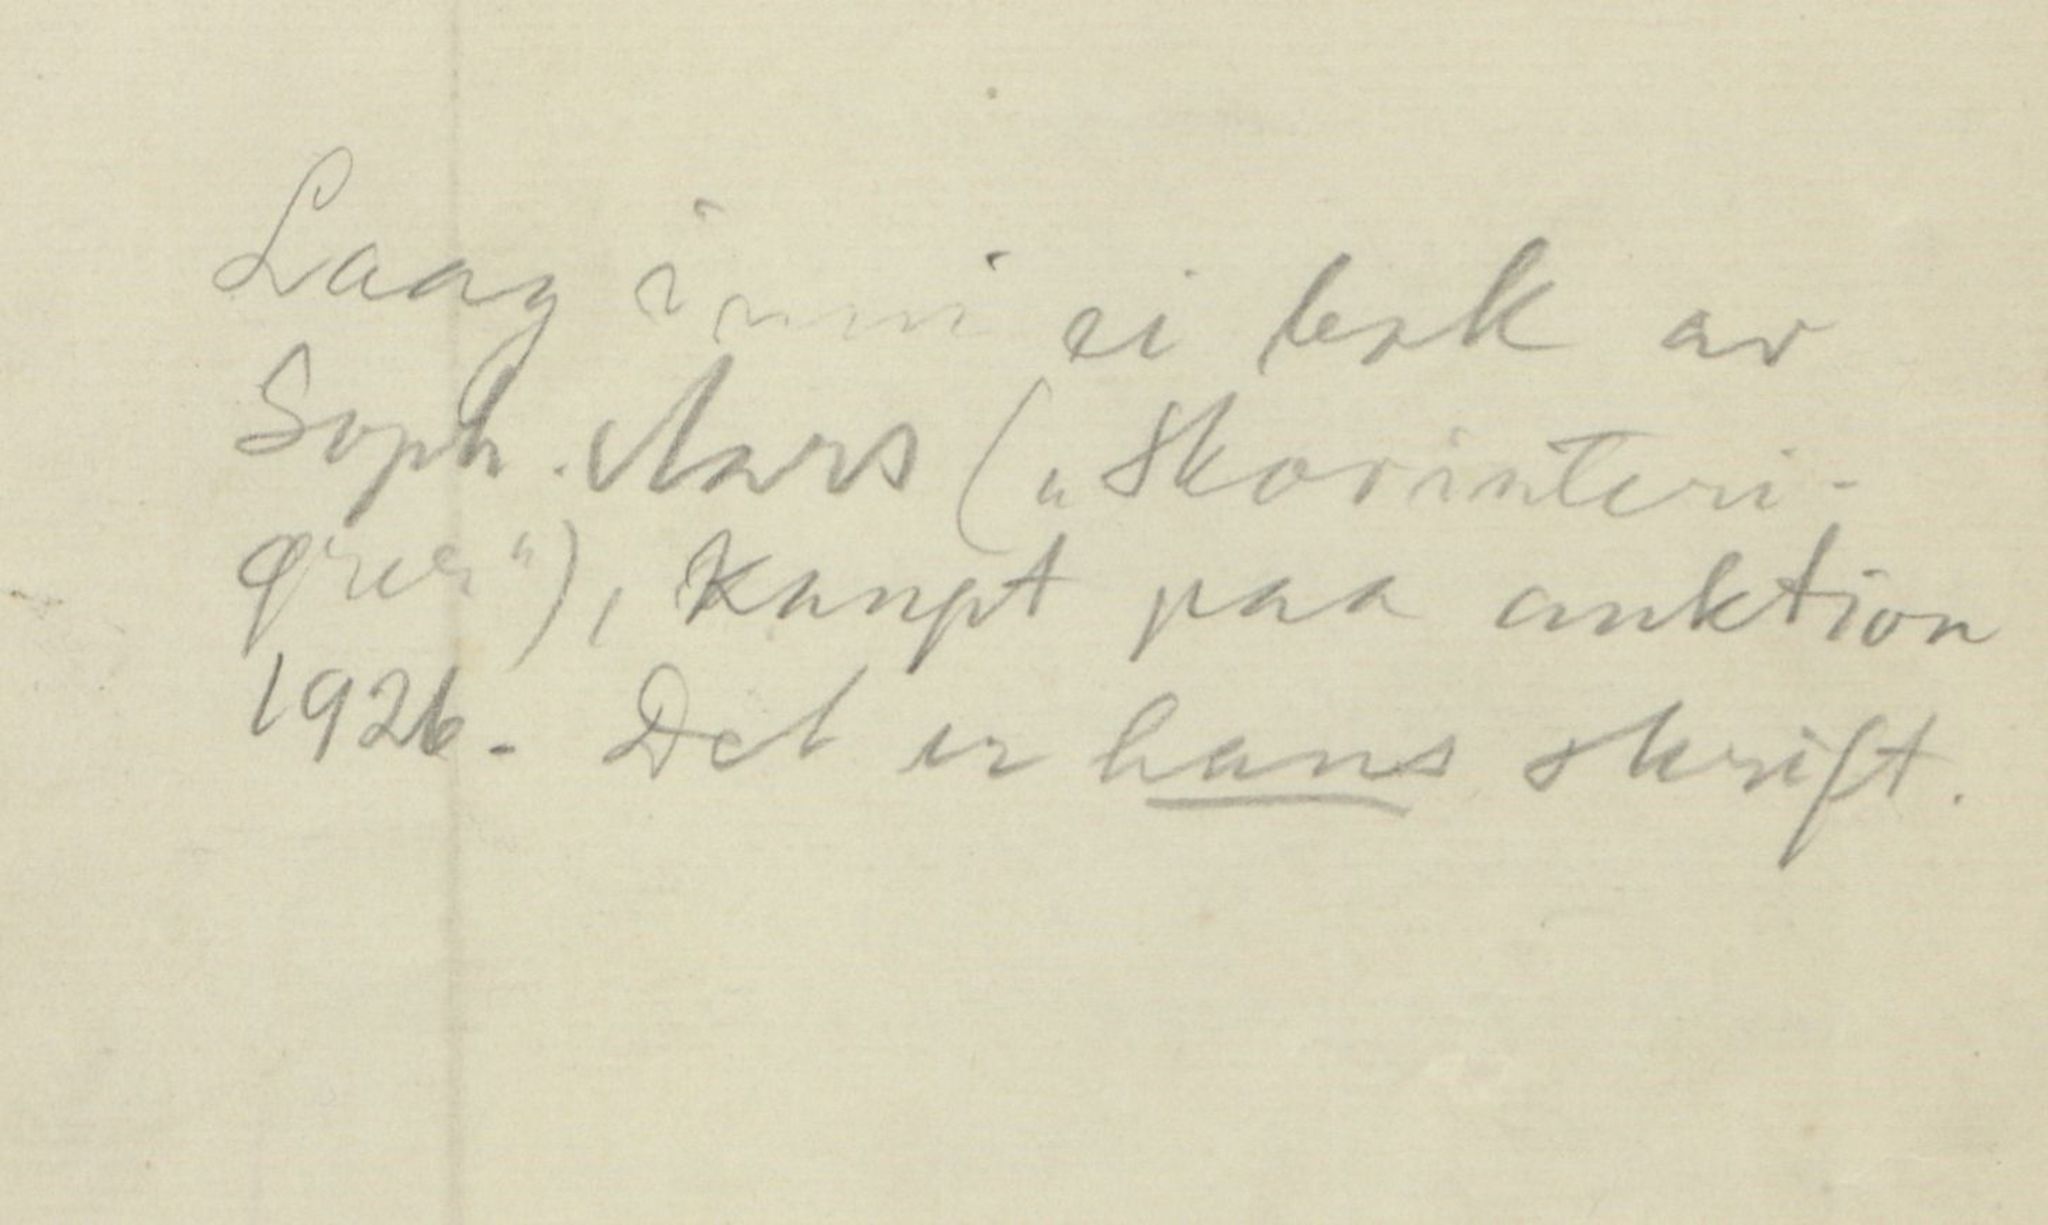 Laag inni ei bok av
Soph. Aars („Skovinteri-
ører"), Kaupt paa auktion
1926. Det er hans skrift.